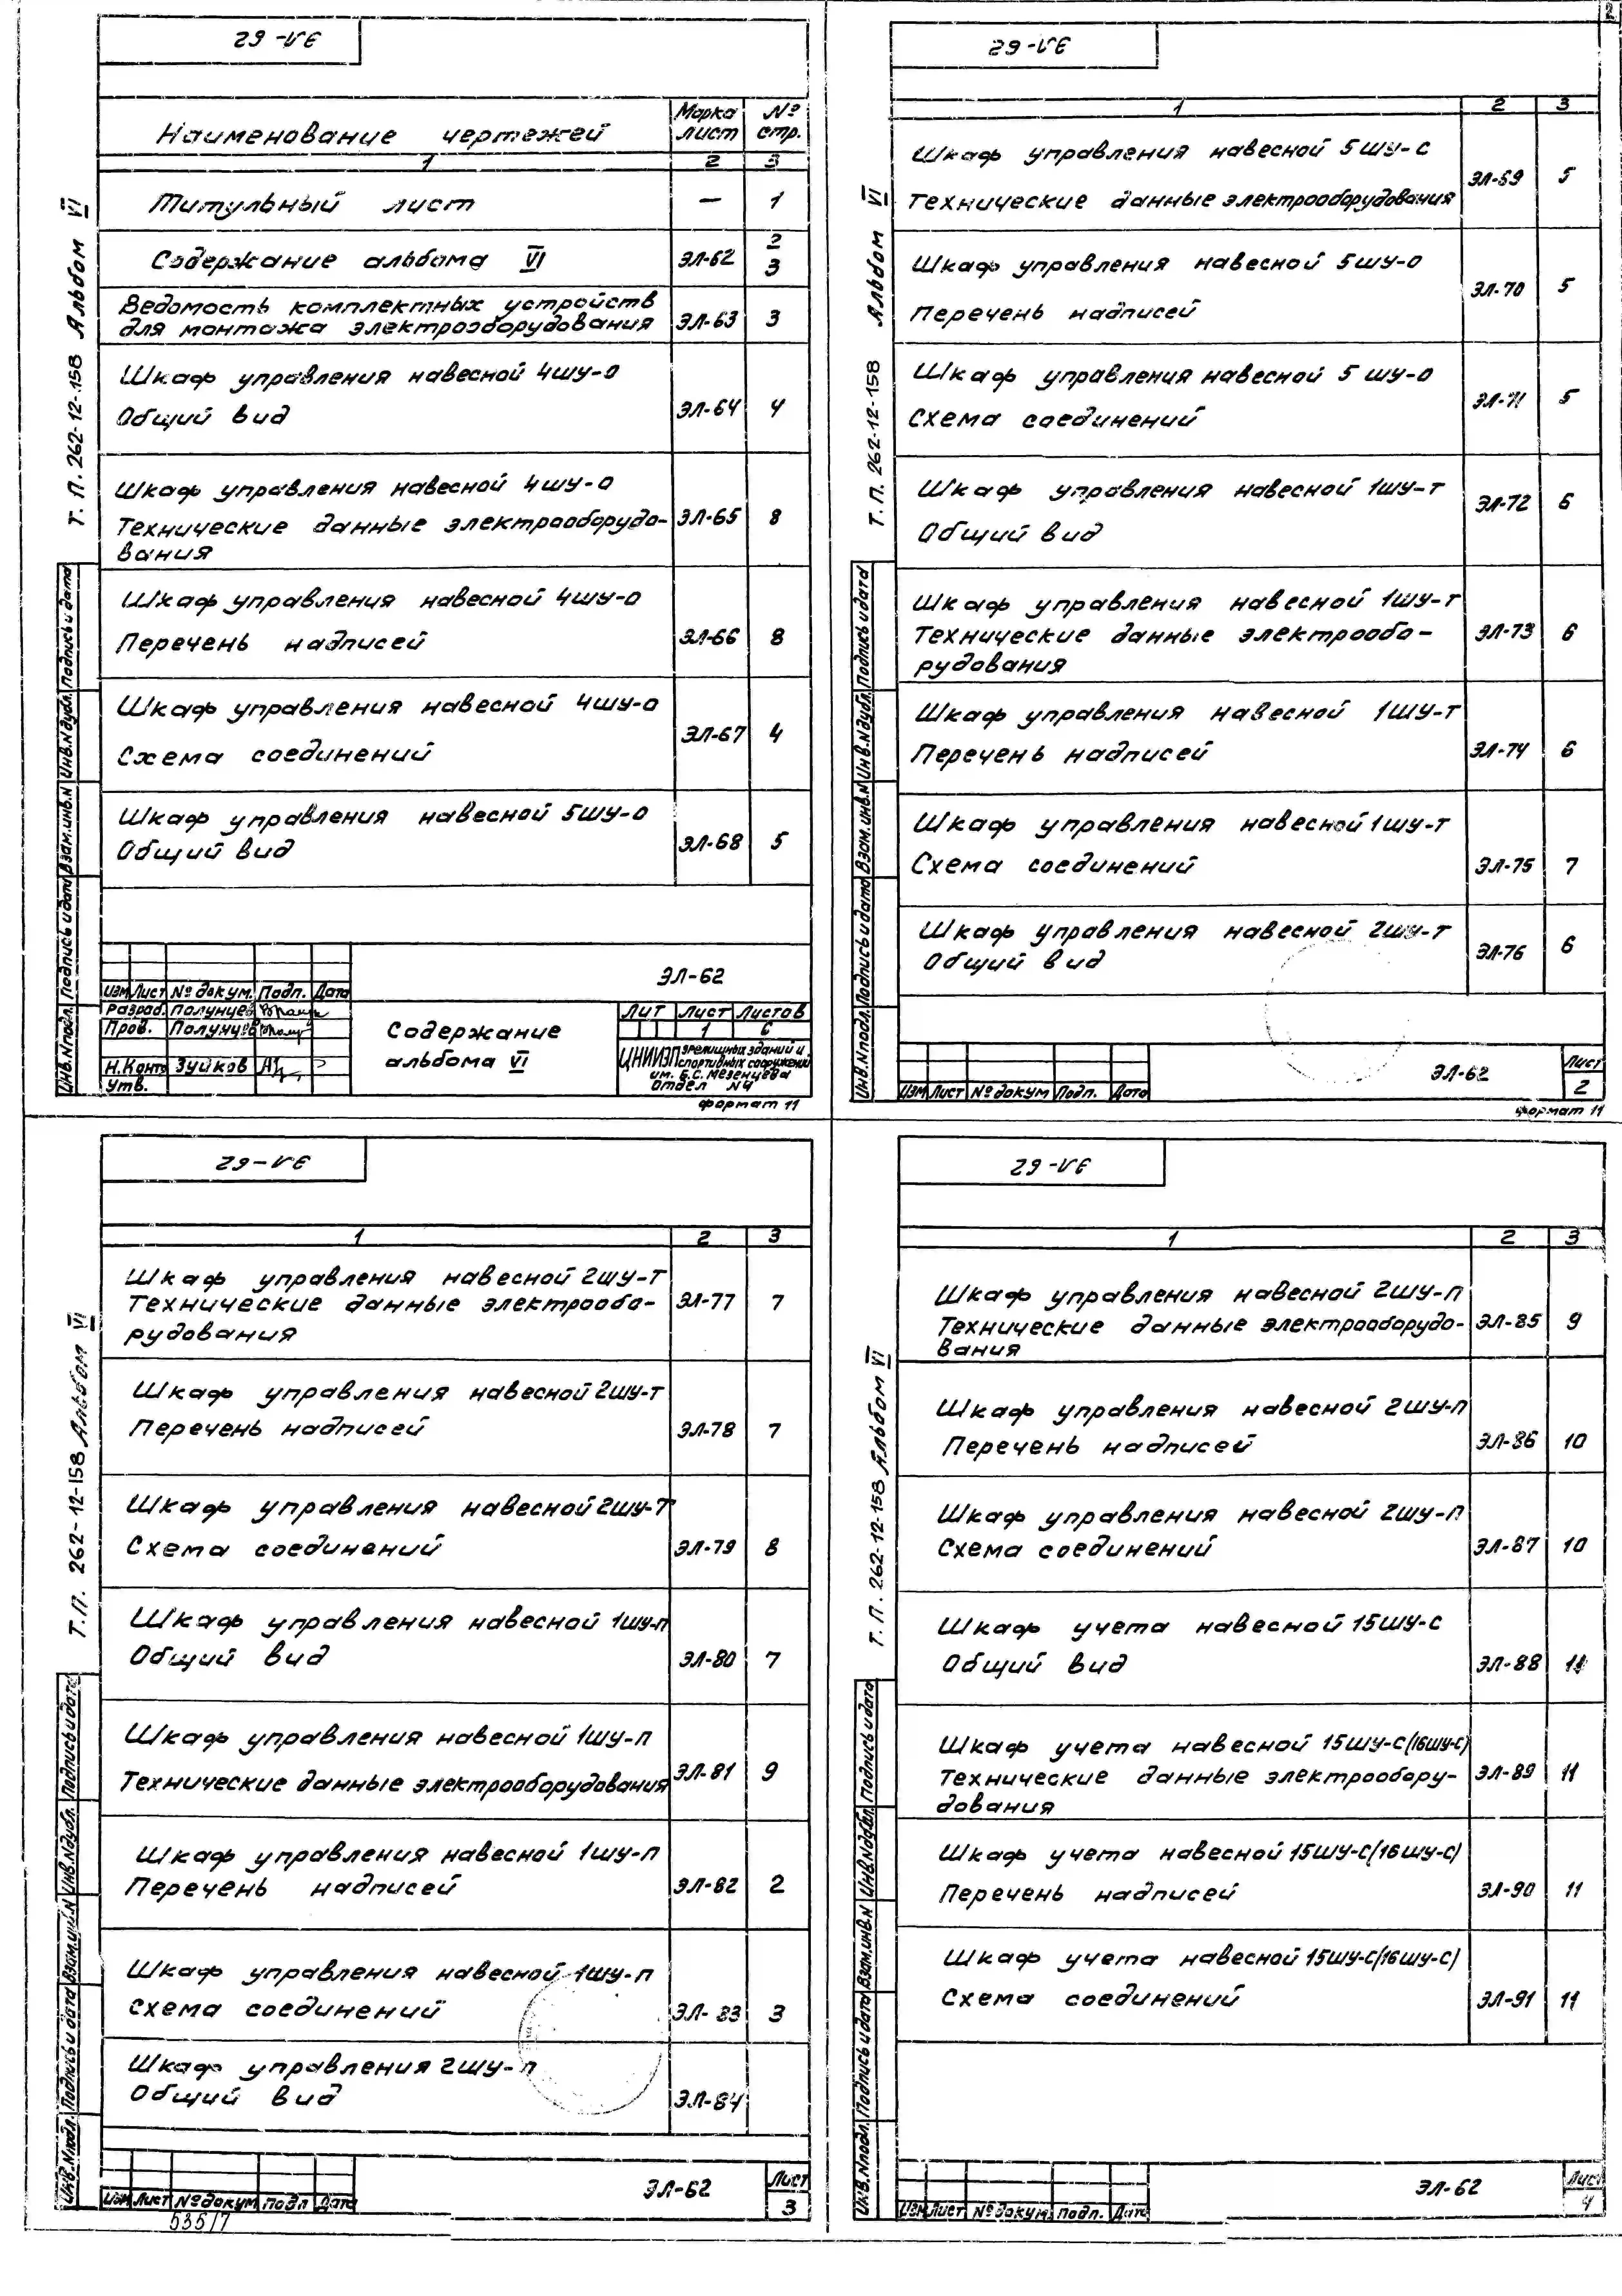 ЭЛ-62
Наименование чертежей
Марка лист
№ стр.
1 2 3
Титульный лист — 1
Содержание альбома VI ЭЛ-62 2 3
Ведомость комплектных устройств
для монтажа электрооборудования ЭЛ-63 3
Шкаф управления навесной 4шу-о
Общий вид ЭЛ-64 4
Шкаф управления навесной 4шу-о
Технические данные электрооборудо- ЭЛ-65 8
вания
Шкаф управления навесной 4шу-о
Перечень надписей ЭЛ-66 8
Шкаф управления навесной 4шу-о
Схема соединений ЭЛ-67 4
Шкаф управления навесной 5шу-о
Общий вид ЭЛ-68 5
Т.П. 262-12-158 Альбом VI
Инв.Nподл. Подпись и дата Взам.инв.N Инв.Nдубл. Подпись и дата
Изм Лист № докум. Подп. Дата
Разраб. Полунцев
Пров. Полунцев
Н.Контр Зуйков
Утв.
ЭЛ-62
Содержание
альбома VI
Лит Лист Листов
1 6
ЦНИИЭП зрелищных зданий и
спортивных сооружений
им. Б.С. Мезенцева
отдел N4
формат 11
2
ЭЛ-62
1 2 3
Шкаф управления навесной 5шу-с
Технические данные электрооборудования ЭЛ-69 5
Шкаф управления навесной 5шу-о
Перечень надписей ЭЛ-70 5
Шкаф управления навесной 5шу-о
Схема соединений ЭЛ-71 5
Шкаф управления навесной 1шу-т
Общий вид ЭЛ-72 6
Шкаф управления навесной 1шу-т
Технические данные электрообо- ЭЛ-73 6
рудования
Шкаф управления навесной 1шу-т
Перечень надписей ЭЛ-74 6
Шкаф управления навесной 1шу-т
Схема соединений ЭЛ-75 7
Шкаф управления навесной 2шу-т
Общий вид ЭЛ-76 6
Т.П. 262-12-158 Альбом VI
Инв.Nподл. Подпись и дата Взам.инв.N Инв.Nдубл. Подпись и дата
Изм Лист № докум Подп. Дата
ЭЛ-62
Лист
2
формат 11
ЭЛ-62
1 2 3
Шкаф управления навесной 2шу-т
Технические данные электрообо- ЭЛ-77 7
рудования
Шкаф управления навесной 2шу-т
Перечень надписей ЭЛ-78 7
Шкаф управления навесной 2шу-т
Схема соединений ЭЛ-79 8
Шкаф управления навесной 1шу-п
Общий вид ЭЛ-80 7
Шкаф управления навесной 1шу-п
Технические данные электрооборудования ЭЛ-81 9
Шкаф управления навесной 1шу-п
Перечень надписей ЭЛ-82 2
Шкаф управления навесной 1шу-п
Схема соединений ЭЛ-83 3
Шкаф управления 2шу-п
Общий вид ЭЛ-84
Т.П. 262-12-158 Альбом VI
Инв.Nподл. Подпись и дата Взам.инв.N Инв.Nдубл. Подпись и дата
Изм Лист № докум Подп Дата
ЭЛ-62
Лист
3
535/7
ЭЛ-62
1 2 3
Шкаф управления навесной 2шу-п
Технические данные электрооборудо- ЭЛ-85 9
вания
Шкаф управления навесной 2шу-п
Перечень надписей ЭЛ-86 10
Шкаф управления навесной 2шу-п
Схема соединений ЭЛ-87 10
Шкаф учета навесной 15шу-с
Общий вид ЭЛ-88 11
Шкаф учета навесной 15шу-с(16шу-с)
Технические данные электрообору- ЭЛ-89 11
дования
Шкаф учета навесной 15шу-с(16шу-с)
Перечень надписей ЭЛ-90 11
Шкаф учета навесной 15шу-с(16шу-с)
Схема соединений ЭЛ-91 11
Т.П. 262-12-158 Альбом VI
Инв.Nподл. Подпись и дата Взам.инв.N Инв.Nдубл. Подпись и дата
Изм Лист № докум Подп. Дата
ЭЛ-62
Лист
4